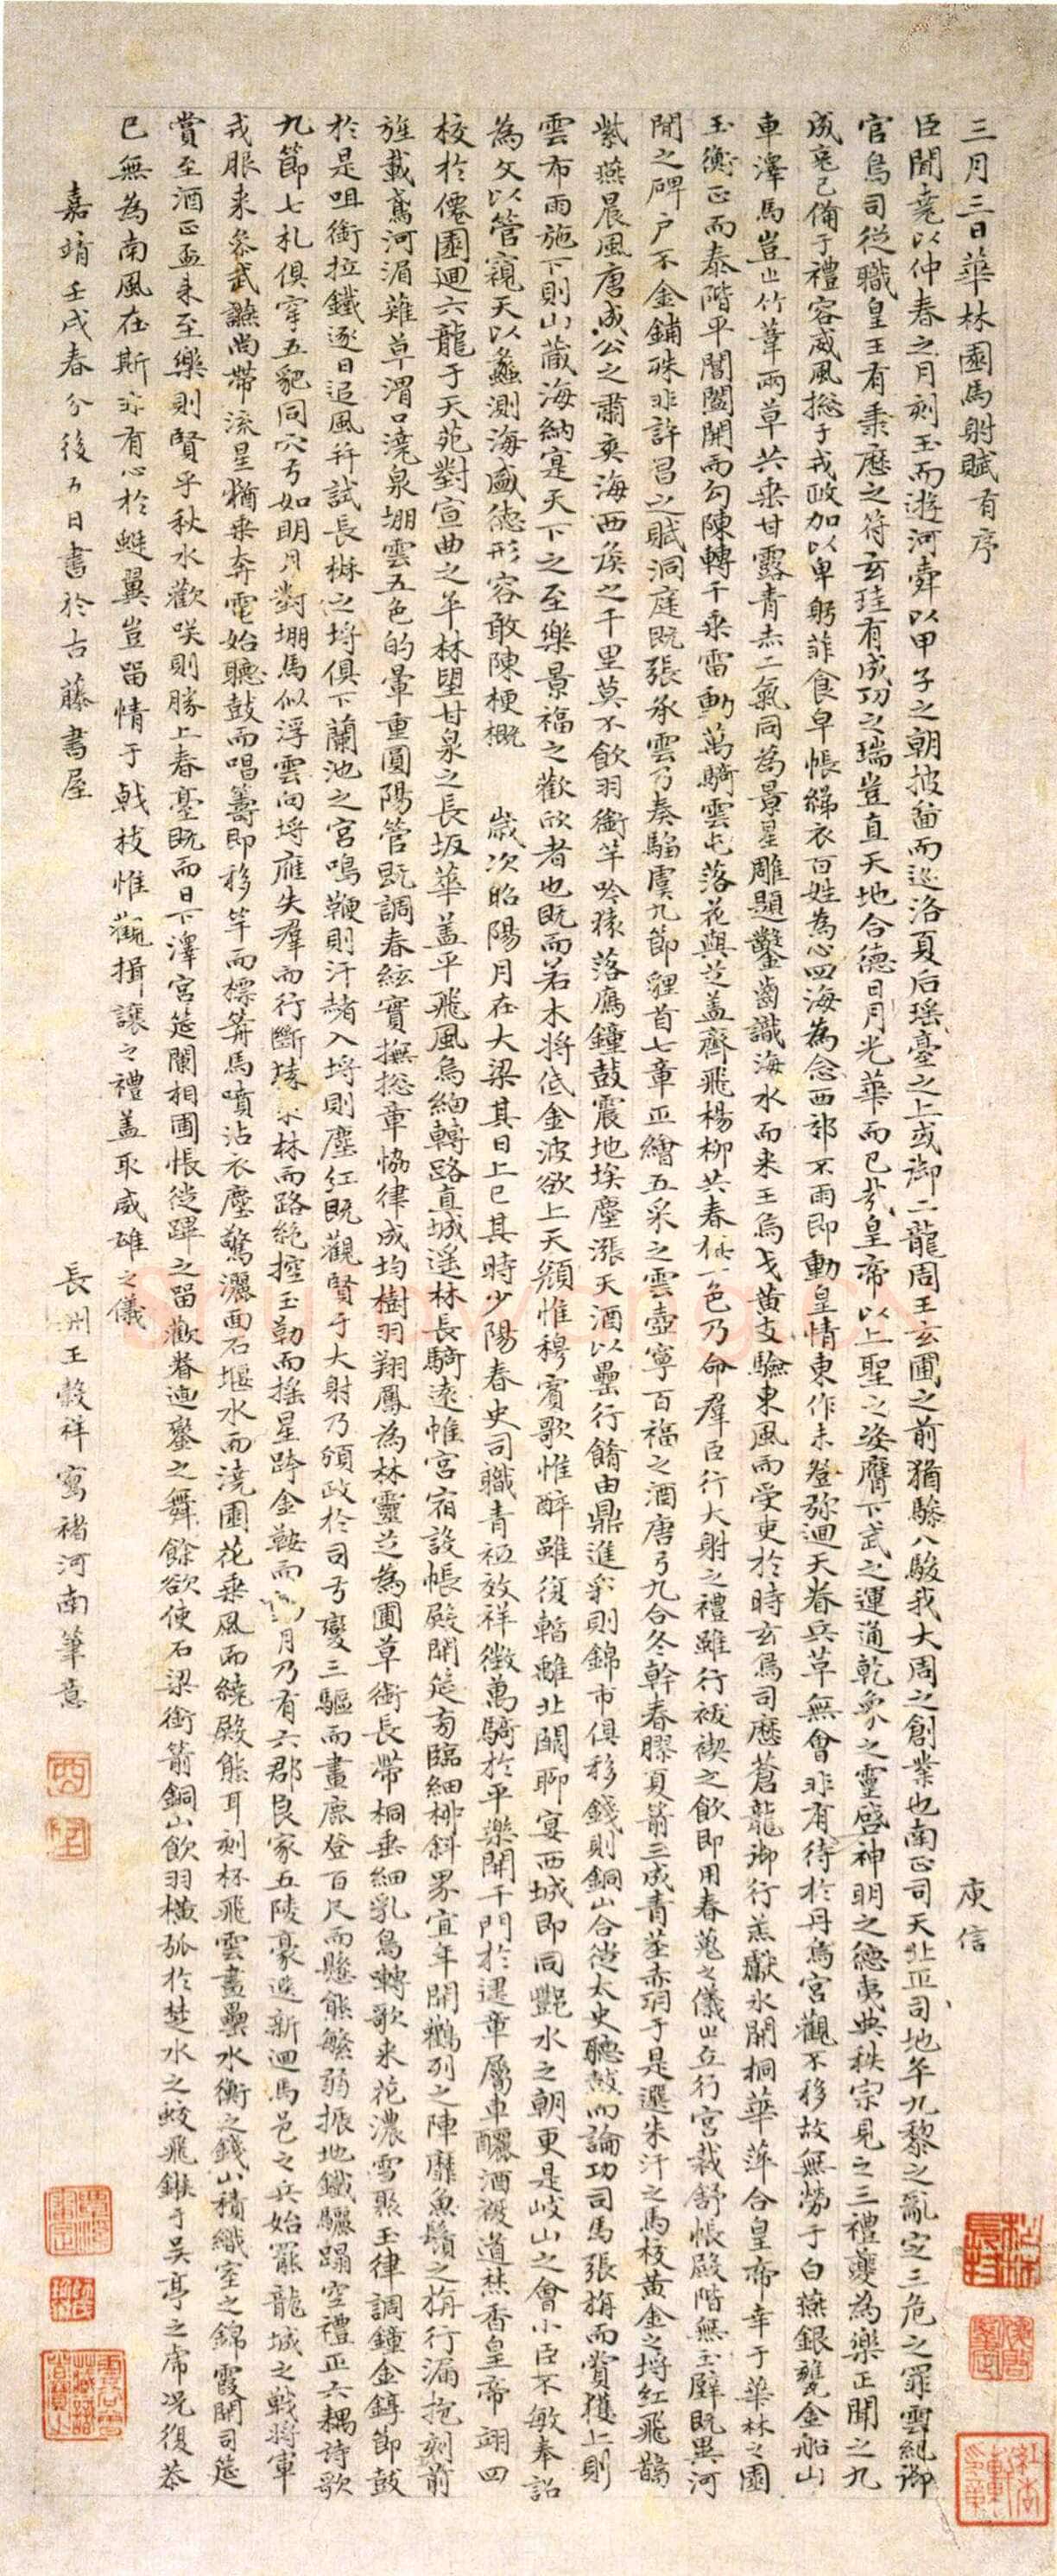 三月三日華林園馬射賦有序 庾信
臣聞堯以仲春之月刻玉而遊河舜以甲子之朝披圖而巡洛夏后瑤臺之上或御二龍周王玄圃之前猶驂八駿我大周之創業也南正司天北正司地平九黎之亂定三危之罪雲紀御
官鳥司從職皇王有秉歷之符玄珪有成功之瑞豈直天地合德日月光華而已哉皇帝以上聖之姿膺下武之運通乾象之靈啟神明之德夷典秩宗見之三禮夔為樂正聞之九
成克已備于禮容威風摠于戎政加以卑躬菲食皁帳綈衣百姓為心四海為念西郊不雨即動皇情東作未登彌迴天眷兵革無會非有待於丹烏宮觀不移故無勞于白燕銀甕金船山
車澤馬豈止竹葦兩草共垂甘露青赤二氣同為景星雕題鑿齒識海水而來王烏弋黃支驗東風而受吏於時玄鳥司歷蒼龍御行羔獻冰開桐華萍合皇帝幸于華林之園
玉衡正而泰階平閶闔開而勾陳轉千乘雷動萬騎雲屯落花與芝蓋齊飛楊柳共春旗一色乃命群臣行大射之禮雖行祓禊之飲即用春蒐之儀止立行宮裁舒帳殿階無玉璧既異河
間之碑户不金鋪殊非許昌之賦洞庭既張承雲乃奏騶虞九節貍首七章正繪五采之雲壺寧百福之酒唐弓九合冬幹春膠夏箭三成青莖赤羽于是選朱汗之馬校黃金之埒紅飛鵲
紫燕晨風唐成公之肅爽海西侯之千里莫不飲羽銜竿吟猿落鴈鐘鼓震地埃塵漲天酒以罍行餚由鼎進采則錦市俱移錢則銅山合徙太史聽鼓而論功司馬張旃而賞獲上則
雲布雨施下則山藏海納寔天下之至樂景福之歡欣者也既而若木將低金波欲上天顏惟穆賓歌惟醉雖復暫離北闕聊宴西城即同酆水之朝更是岐山之會小臣不敏奉詔
為文以管窺天以蠡測海盛德形容敢陳梗概 歲次昭陽月在大梁其日上巳其時少陽春史司職青祇效祥徵萬騎於平樂開千門於建章屬車釃酒複道焚香皇帝翊四
校於僊園迴六龍于天苑對宣曲之平林望甘泉之長坂華蓋平飛風烏細轉路直城遥林長騎遠帷宮宿設帳殿開筵旁臨細柳斜界宜年開鸛列之陣靡魚鬚之旃行漏抱刻前
旌載鳶河湄薙草渭口澆泉堋雲五色的暈重圓陽管既調春絃實撫摠章協律成均樹羽翔鳳為林靈芝為圃草銜長帶桐垂細乳鳥轉歌來花濃雪聚玉律調鐘金錞節鼓
於是咀銜拉鐵逐日追風并試長楸之埒俱下蘭池之宮鳴鞭則汗赭入埒則塵紅既觀賢于大射乃頒政於司弓變三驅而畫鹿登百尺而懸熊繁弱振地鐵驪蹋空禮正六耦詩歌
九節七札俱穿五豝同穴弓如明月對堋馬似浮雲向埒雁失群而行斷猿求林而路絶控玉勒而搖星跨金鞍而動月乃有六郡良家五陵豪選新迴馬邑之兵始罷龍城之戰將軍
戎服來參武讌尚帶流星猶乘奔電始聽鼓而唱籌即移竿而標箭馬噴沾衣塵驚灑面石堰水而澆圃花乘風而繞殿熊耳刻杯飛雲畫罍水衡之錢山積織室之錦霞開司筵
賞至酒正盃來至樂則賢乎秋水歡咲則勝上春臺既而日下澤宮筵闌相圃悵從蹕之留歡眷迴鑾之舞餘欲使石梁銜箭銅山飲羽橫弧於楚水之蛟飛鏃于吳亭之虎况復恭
已無為南風在斯非有心於蜓翼豈留情于戟枝惟觀揖讓之禮蓋取威雄之儀
嘉靖壬戌春分後五日書於古藤書屋 長洲王穀祥寫褚河南筆意